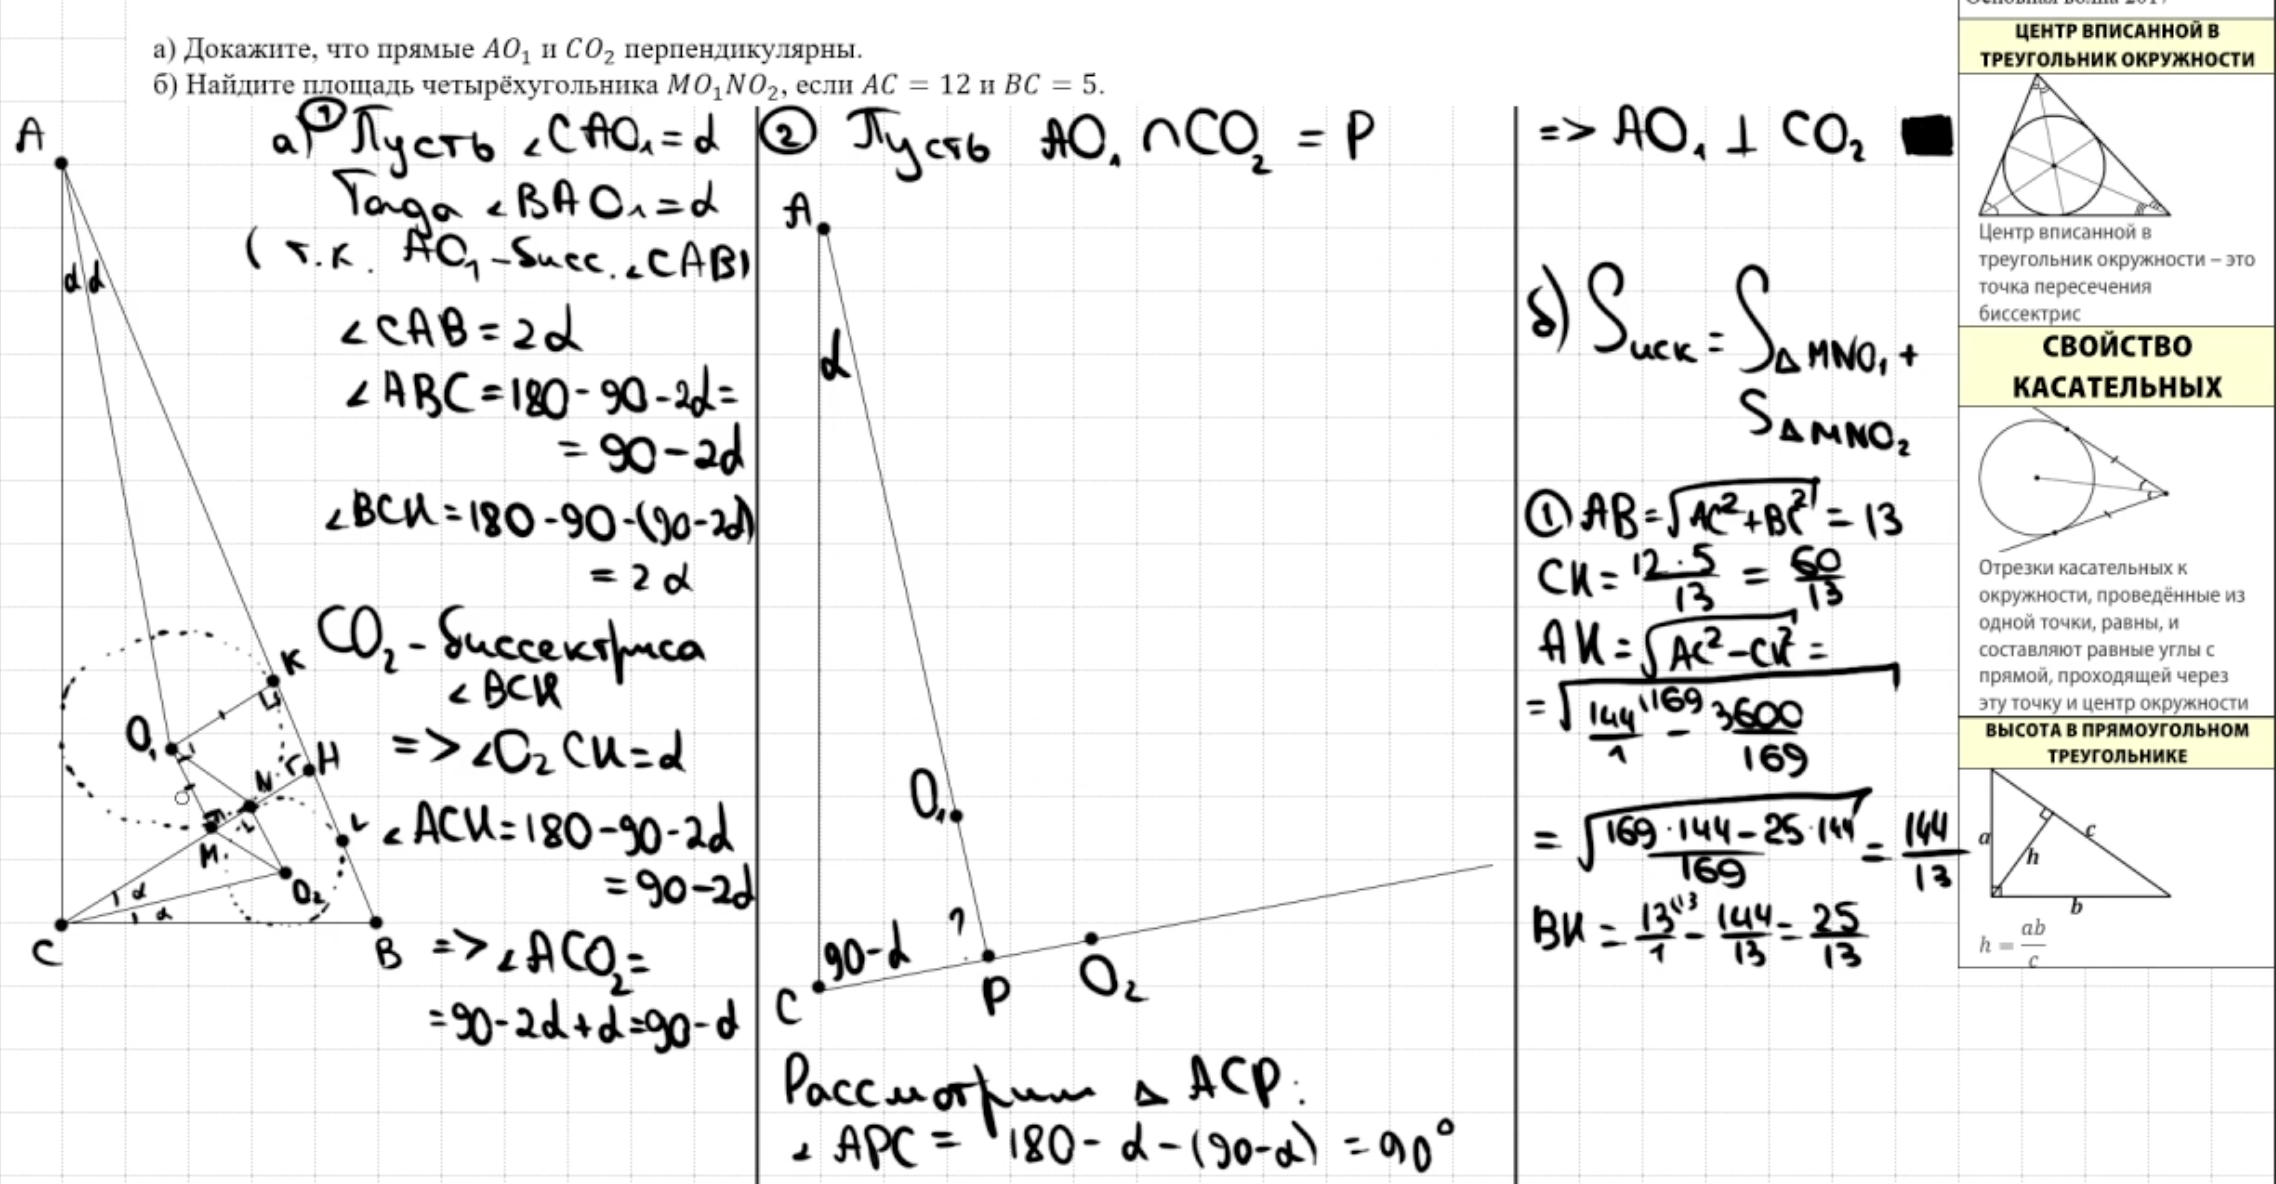 а) Докажите, что прямые AO₁ и CO₂ перпендикулярны.
б) Найдите площадь четырёхугольника MO₁NO₂, если AC = 12 и BC = 5.
A
α α
K
O₁
H
N
M
L
O₂
α
α
C
B
а) ① Пусть ∠CAO₁ = α
Тогда ∠BAO₁ = α
( т.к. AO₁ - бисс. ∠CAB)
∠CAB = 2α
∠ABC = 180 - 90 - 2α =
= 90 - 2α
∠BCK = 180 - 90 - (90 - 2α)
= 2α
CO₂ - биссектриса
∠BCK
=> ∠O₂CK = α
∠ACK = 180 - 90 - 2α
= 90 - 2α
=> ∠ACO₂ =
= 90 - 2α + α = 90 - α
② Пусть AO₁ ∩ CO₂ = P
A
α
O₁
?
90 - α
C
P
O₂
Рассмотрим Δ ACP:
∠APC = 180 - α - (90 - α) = 90°
=> AO₁ ⊥ CO₂ ■
б) Sиск = SΔMNO₁ +
SΔMNO₂
① AB = √(AC² + BC²) = 13
CK = 12·5/13 = 60/13
AK = √(AC² - CK²) =
= √(144/1 \169 - 3600/169)
= √((169·144 - 25·144)/169) = 144/13
BK = 13/1 \13 - 144/13 = 25/13
ЦЕНТР ВПИСАННОЙ В
ТРЕУГОЛЬНИК ОКРУЖНОСТИ
Центр вписанной в
треугольник окружности – это
точка пересечения
биссектрис
СВОЙСТВО
КАСАТЕЛЬНЫХ
Отрезки касательных к
окружности, проведённые из
одной точки, равны, и
составляют равные углы с
прямой, проходящей через
эту точку и центр окружности
ВЫСОТА В ПРЯМОУГОЛЬНОМ
ТРЕУГОЛЬНИКЕ
a
c
h
b
h = ab/c